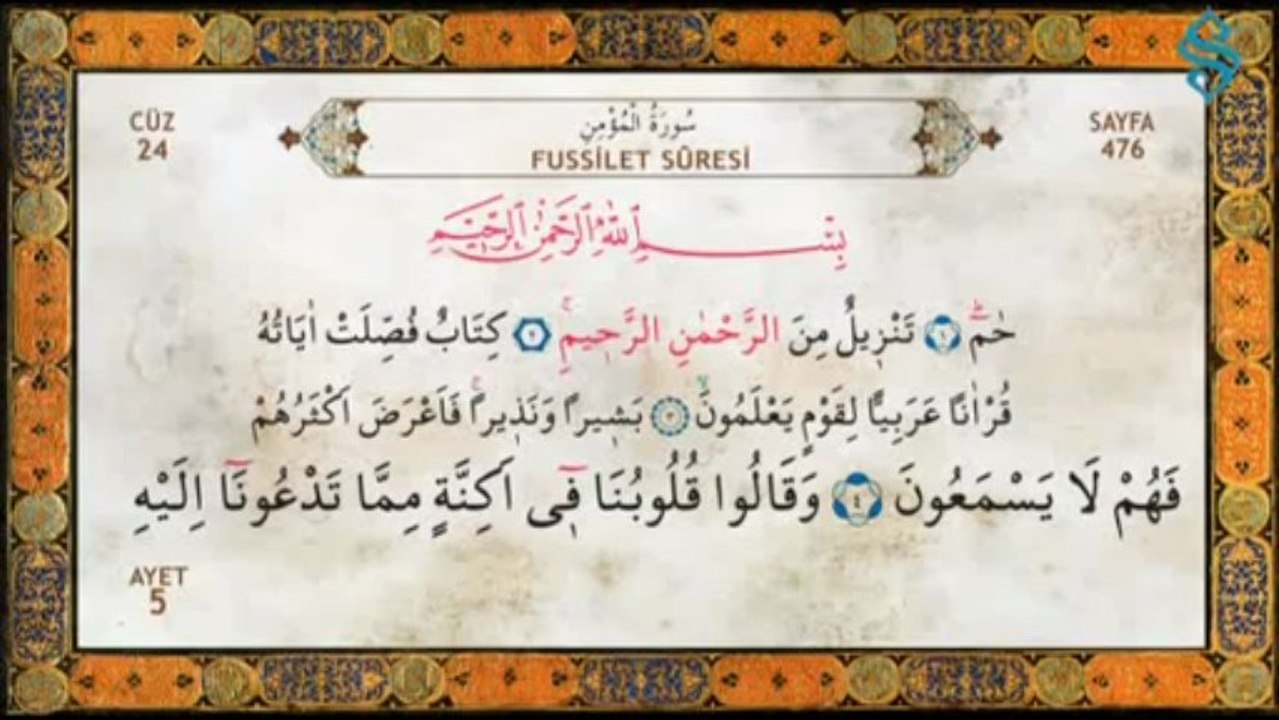 CÜZ
24
سُورَةُ الْمُؤْمِنِ
FUSSİLET SÛRESİ
SAYFA
476
بِسْمِ اللّٰهِ الرَّحْمٰنِ الرَّحِيمِ
حٰمٓ ﴿١﴾ تَنْزِيلٌ مِنَ الرَّحْمٰنِ الرَّحِيمِۚ ﴿٢﴾ كِتَابٌ فُصِّلَتْ اٰيَاتُهُ
قُرْاٰنًا عَرَبِيًّا لِقَوْمٍ يَعْلَمُونَۙ ﴿٣﴾ بَشِيرًا وَنَذِيرًاۚ فَاَعْرَضَ اَكْثَرُهُمْ
فَهُمْ لَا يَسْمَعُونَ ﴿٤﴾ وَقَالُوا قُلُوبُنَا فٓى اَكِنَّةٍ مِمَّا تَدْعُونَٓا اِلَيْهِ
AYET
5